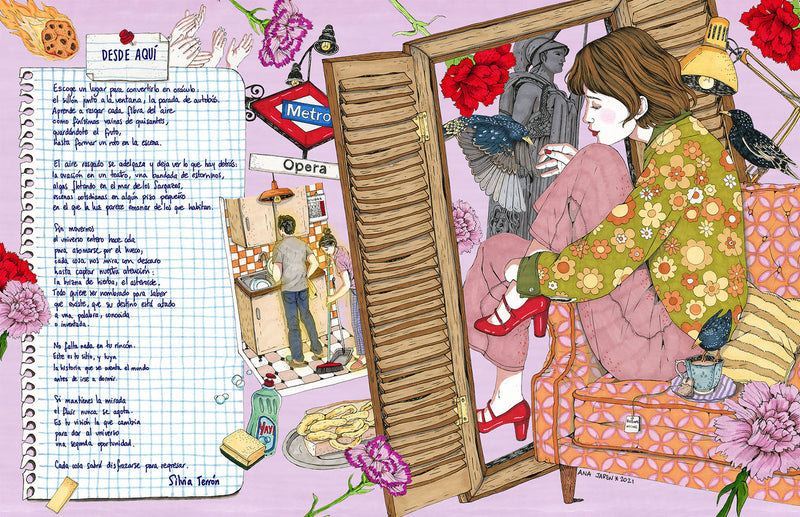 DESDE AQUÍ
Escoge un lugar para convertirlo en oráculo:
el sillón junto a la ventana, la parada de autobús.
Aprende a rasgar cada fibra del aire
como finísimas vainas de guisantes,
guardándote el fruto,
hasta formar un roto en la escena.
El aire rasgado se adelgaza y deja ver lo que hay detrás:
la ovación en un teatro, una bandada de estorninos,
algas flotando en el mar de los Sargazos,
escenas cotidianas en algún piso pequeño
en el que la luz parece emanar de los que habitan.
Sin movernos
el universo entero hace cola
para asomarse por el hueco;
cada cosa nos mira con descaro
hasta captar nuestra atención:
la brizna de hierba, el asteroide.
Todo quiere ser nombrado para saber
que existe, que su destino está atado
a una palabra, conocida
o inventada.
No falta nada en tu rincón.
Este es tu sitio, y tuya
la historia que se cuenta el mundo
antes de irse a dormir.
Si mantienes la mirada
el fluir nunca se agota.
Es tu visión la que cambia
para dar al universo
una segunda oportunidad.
Cada cosa sabrá disfrazarse para regresar.
Silvia Terrón
Metro
Opera
YAY
ANA JAREN 2021